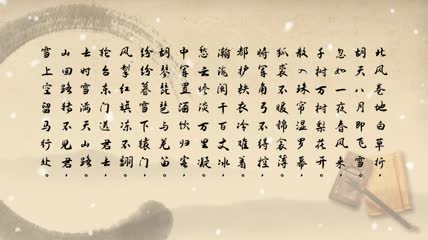 北风卷地白草折，
胡天八月即飞雪。
忽如一夜春风来，
千树万树梨花开。
散入珠帘湿罗幕，
狐裘不暖锦衾薄。
将军角弓不得控，
都护铁衣冷难着。
瀚海阑干百丈冰，
愁云惨淡万里凝。
中军置酒饮归客，
胡琴琵琶与羌笛。
纷纷暮雪下辕门，
风掣红旗冻不翻。
轮台东门送君去，
去时雪满天山路。
山回路转不见君，
雪上空留马行处。